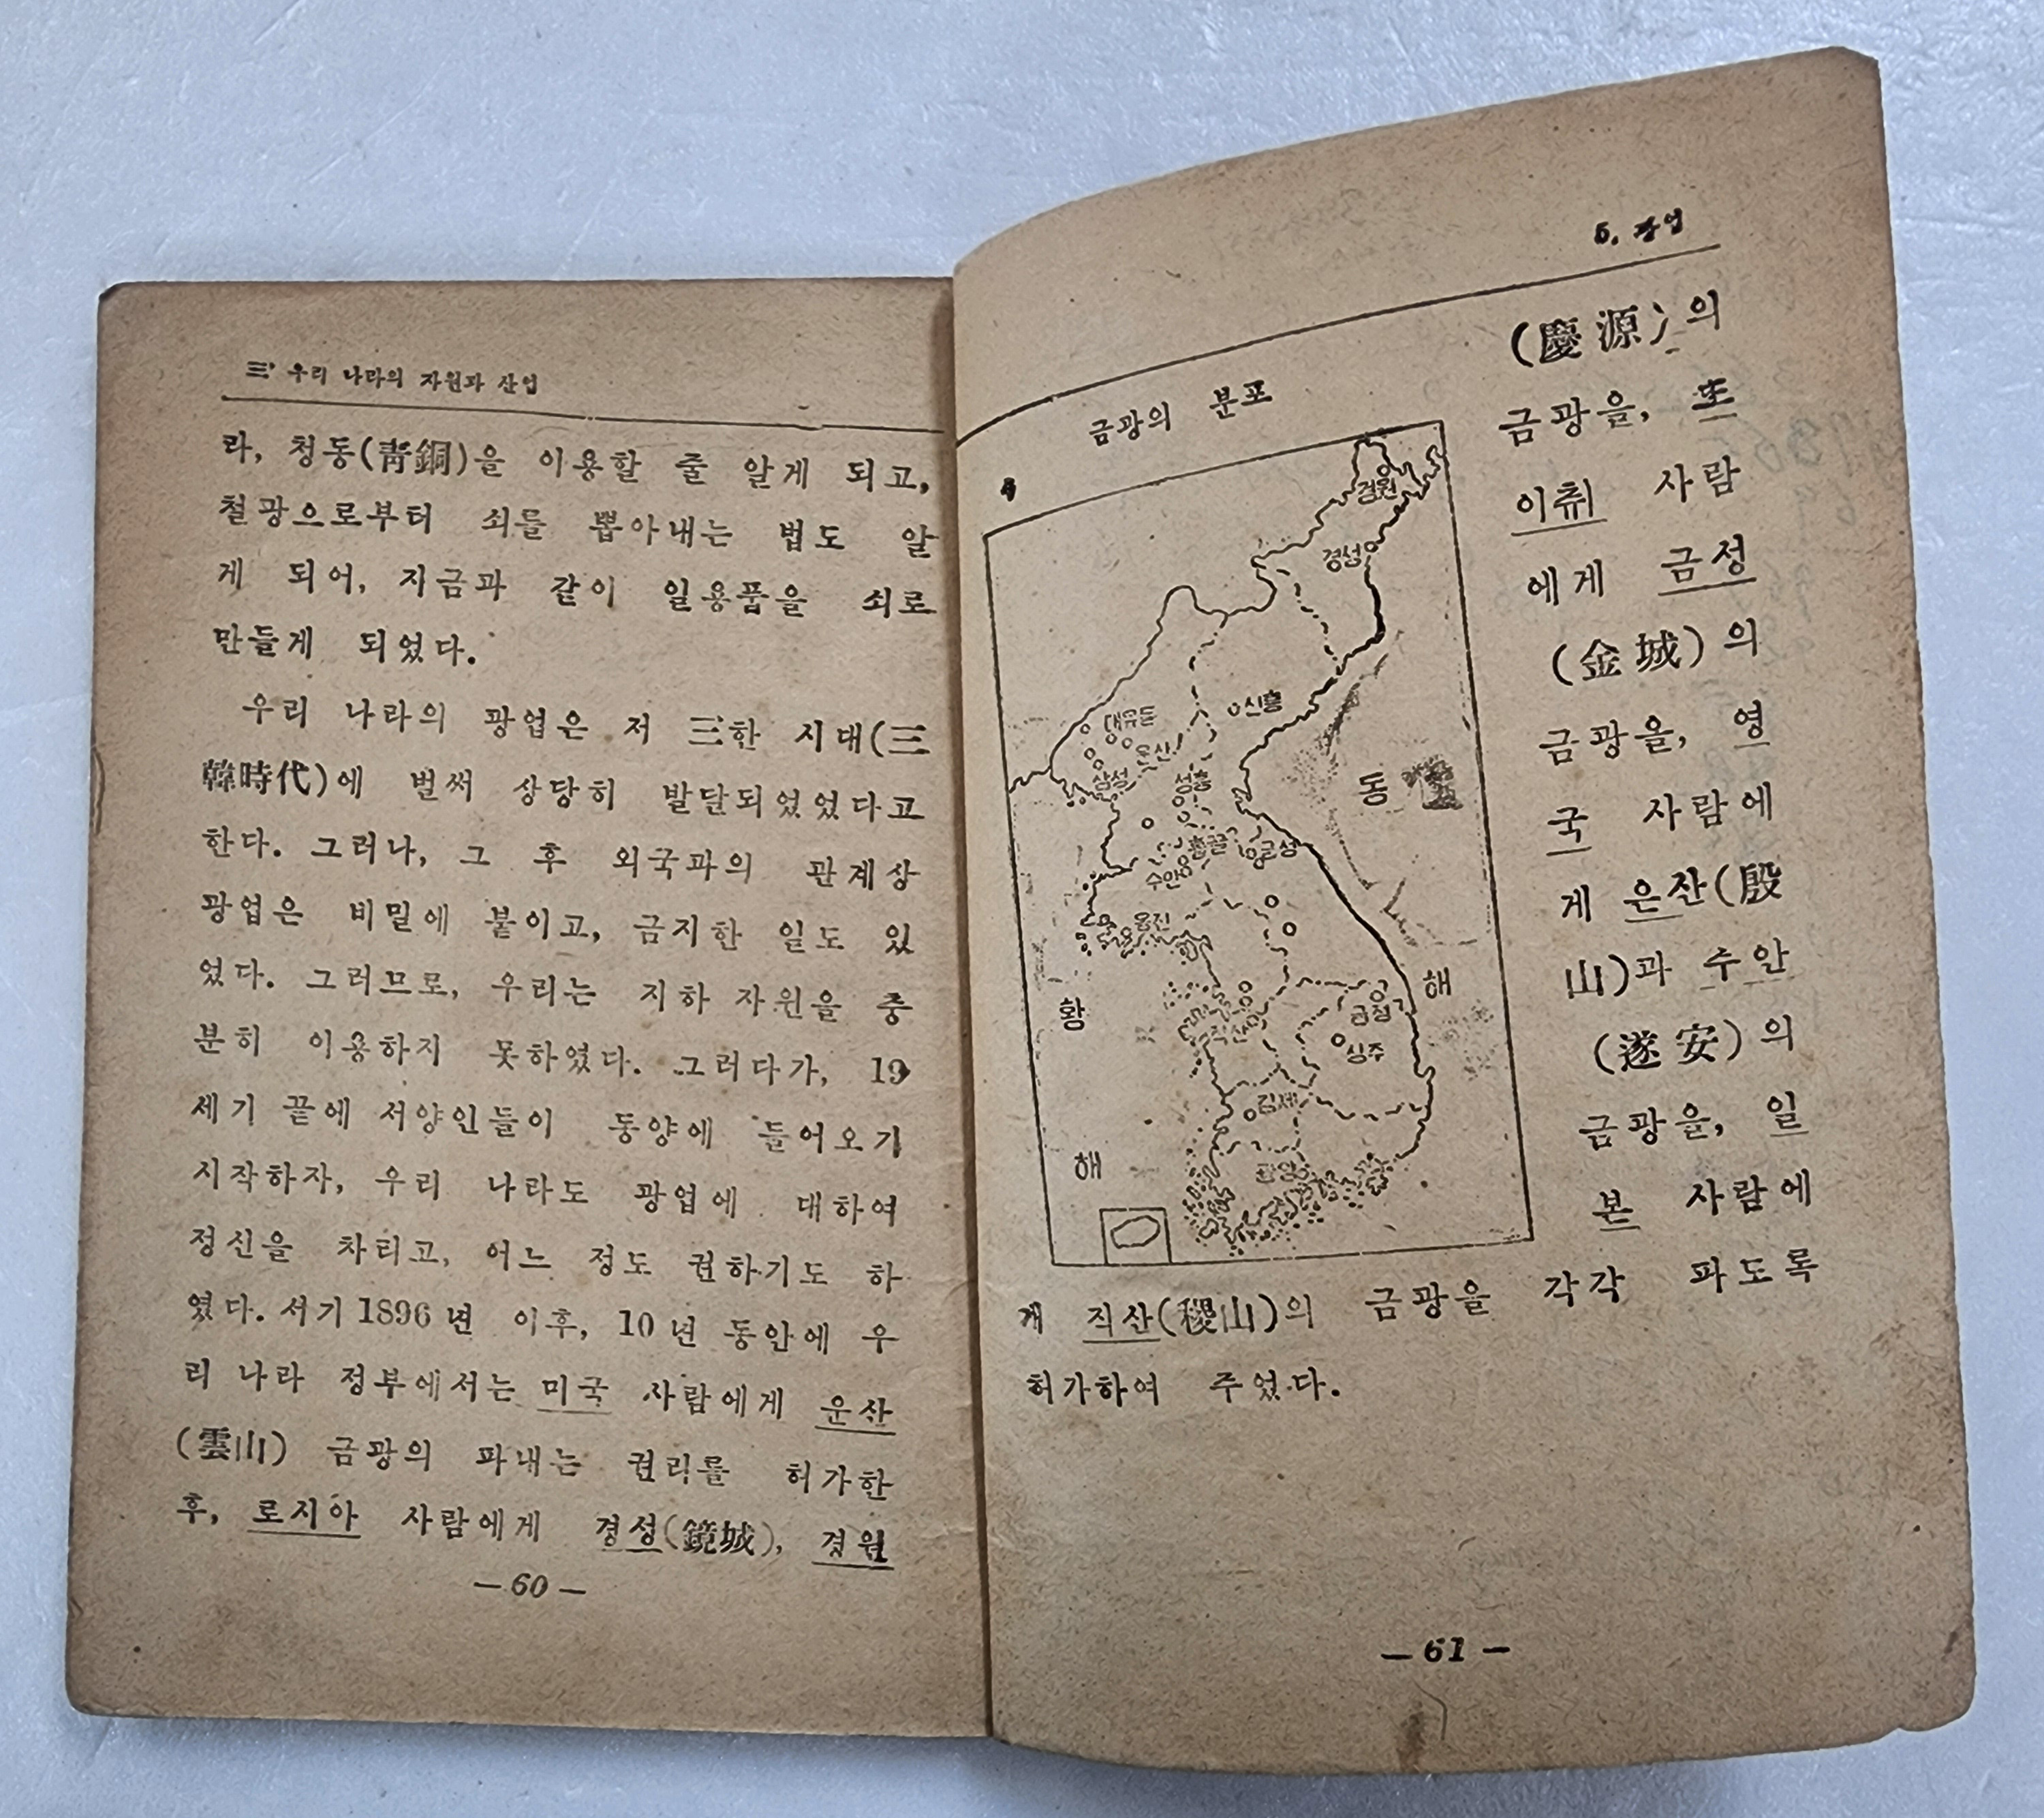 三. 우리 나라의 자원과 산업
라, 청동(靑銅)을 이용할 줄 알게 되고,
철광으로부터 쇠를 뽑아내는 법도 알
게 되어, 지금과 같이 일용품을 쇠로
만들게 되었다.
우리 나라의 광업은 저 三한 시대(三
韓時代)에 벌써 상당히 발달되었었다고
한다. 그러나, 그 후 외국과의 관계상
광업은 비밀에 붙이고, 금지한 일도 있
었다. 그러므로, 우리는 지하 자원을 충
분히 이용하지 못하였다. 그러다가, 19
세기 끝에 서양인들이 동양에 들어오기
시작하자, 우리 나라도 광업에 대하여
정신을 차리고, 어느 정도 권하기도 하
였다. 서기 1896 년 이후, 10 년 동안에 우
리 나라 정부에서는 미국 사람에게 운산
(雲山) 금광의 파내는 권리를 허가한
후, 로시아 사람에게 경성(鏡城), 경원
— 60 —
5. 광업
금광의 분포
경원
경성
신흥
대유동
운산
삼성
성흥
홀골
금성
수안
옹진
동
해
황
해
금정
상주
직산
김제
광양
(慶源)의
금광을, 또
이취 사람
에게 금성
(金城)의
금광을, 영
국 사람에
게 은산(殷
山)과 수안
(遂安)의
금광을, 일
본 사람에
게 직산(稷山)의 금광을 각각 파도록
허가하여 주었다.
— 61 —